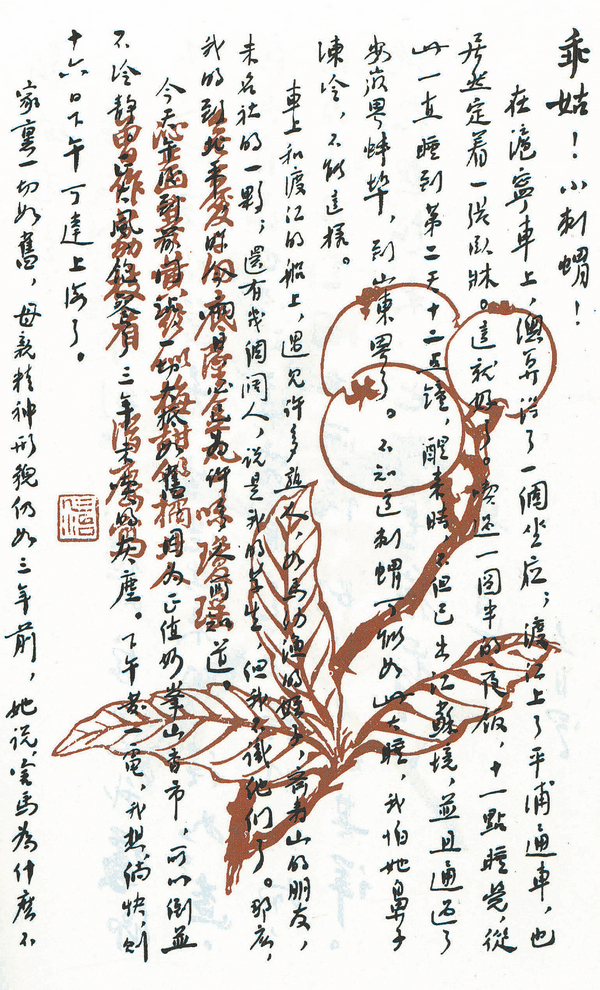 乖姑！小刺蝟！
在滬寧車上，總算得了一個坐位；渡江上了平浦通車，也
居然定着一張臥牀。這就好了。喫過一圓半的夜飯，十一點睡覺，從
此一直睡到第二天十二點鐘，醒來時，不但已出江蘇境，並且通過了
安徽界蚌埠，到山東界了。不知道刺蝟可能如此大睡，我怕她鼻子
凍冷，不能這樣。
車上和渡江的船上，遇見許多熟人，如馬幼漁的侄子，齊壽山的朋友，
未名社的一夥；還有幾個闊人，說是我的學生，但我不識他們了。那麼，
我的到北平，昨今兩日，必已為許多人所知道。
今天午後到前門站，一切大抵如舊，因為正值妙峯山香市，所以倒並
不冷靜。正大風，飽餐了三年未喫的灰塵。下午發一電，我想，倘快，則
十六日下午可達上海了。
家裏一切如舊，母親精神形貌仍如三年前，她說，害馬為什麼不